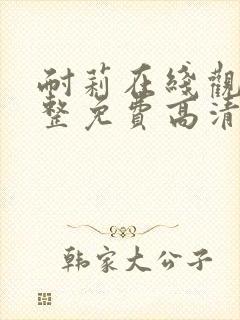 耐莉在綫觀
整免費高清
韩家大公子